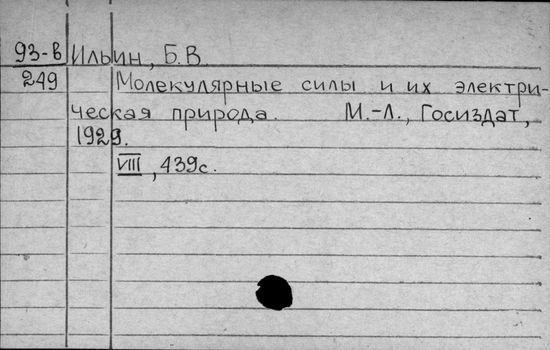 93-В Ильин, Б.В.
249 Молекулярные силы и их электри-
ческая природа. М.-Л., Госиздат,
1929.
VIII, 439с.